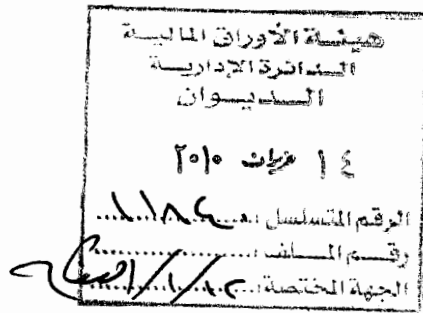 هيئة الأوراق المالية
الدائرة الإدارية
الديوان
١٤ حزيران ٢٠١٠
الرقم المتسلسل :
رقم الملف :
الجهة المختصة :